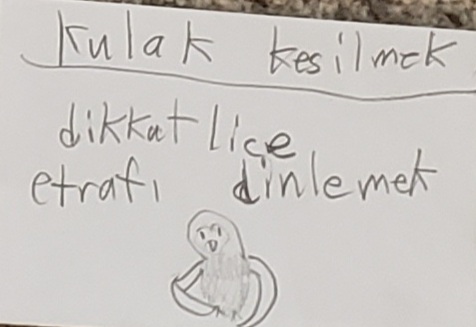 kulak kesilmek
dikkatlice
etrafı dinlemek